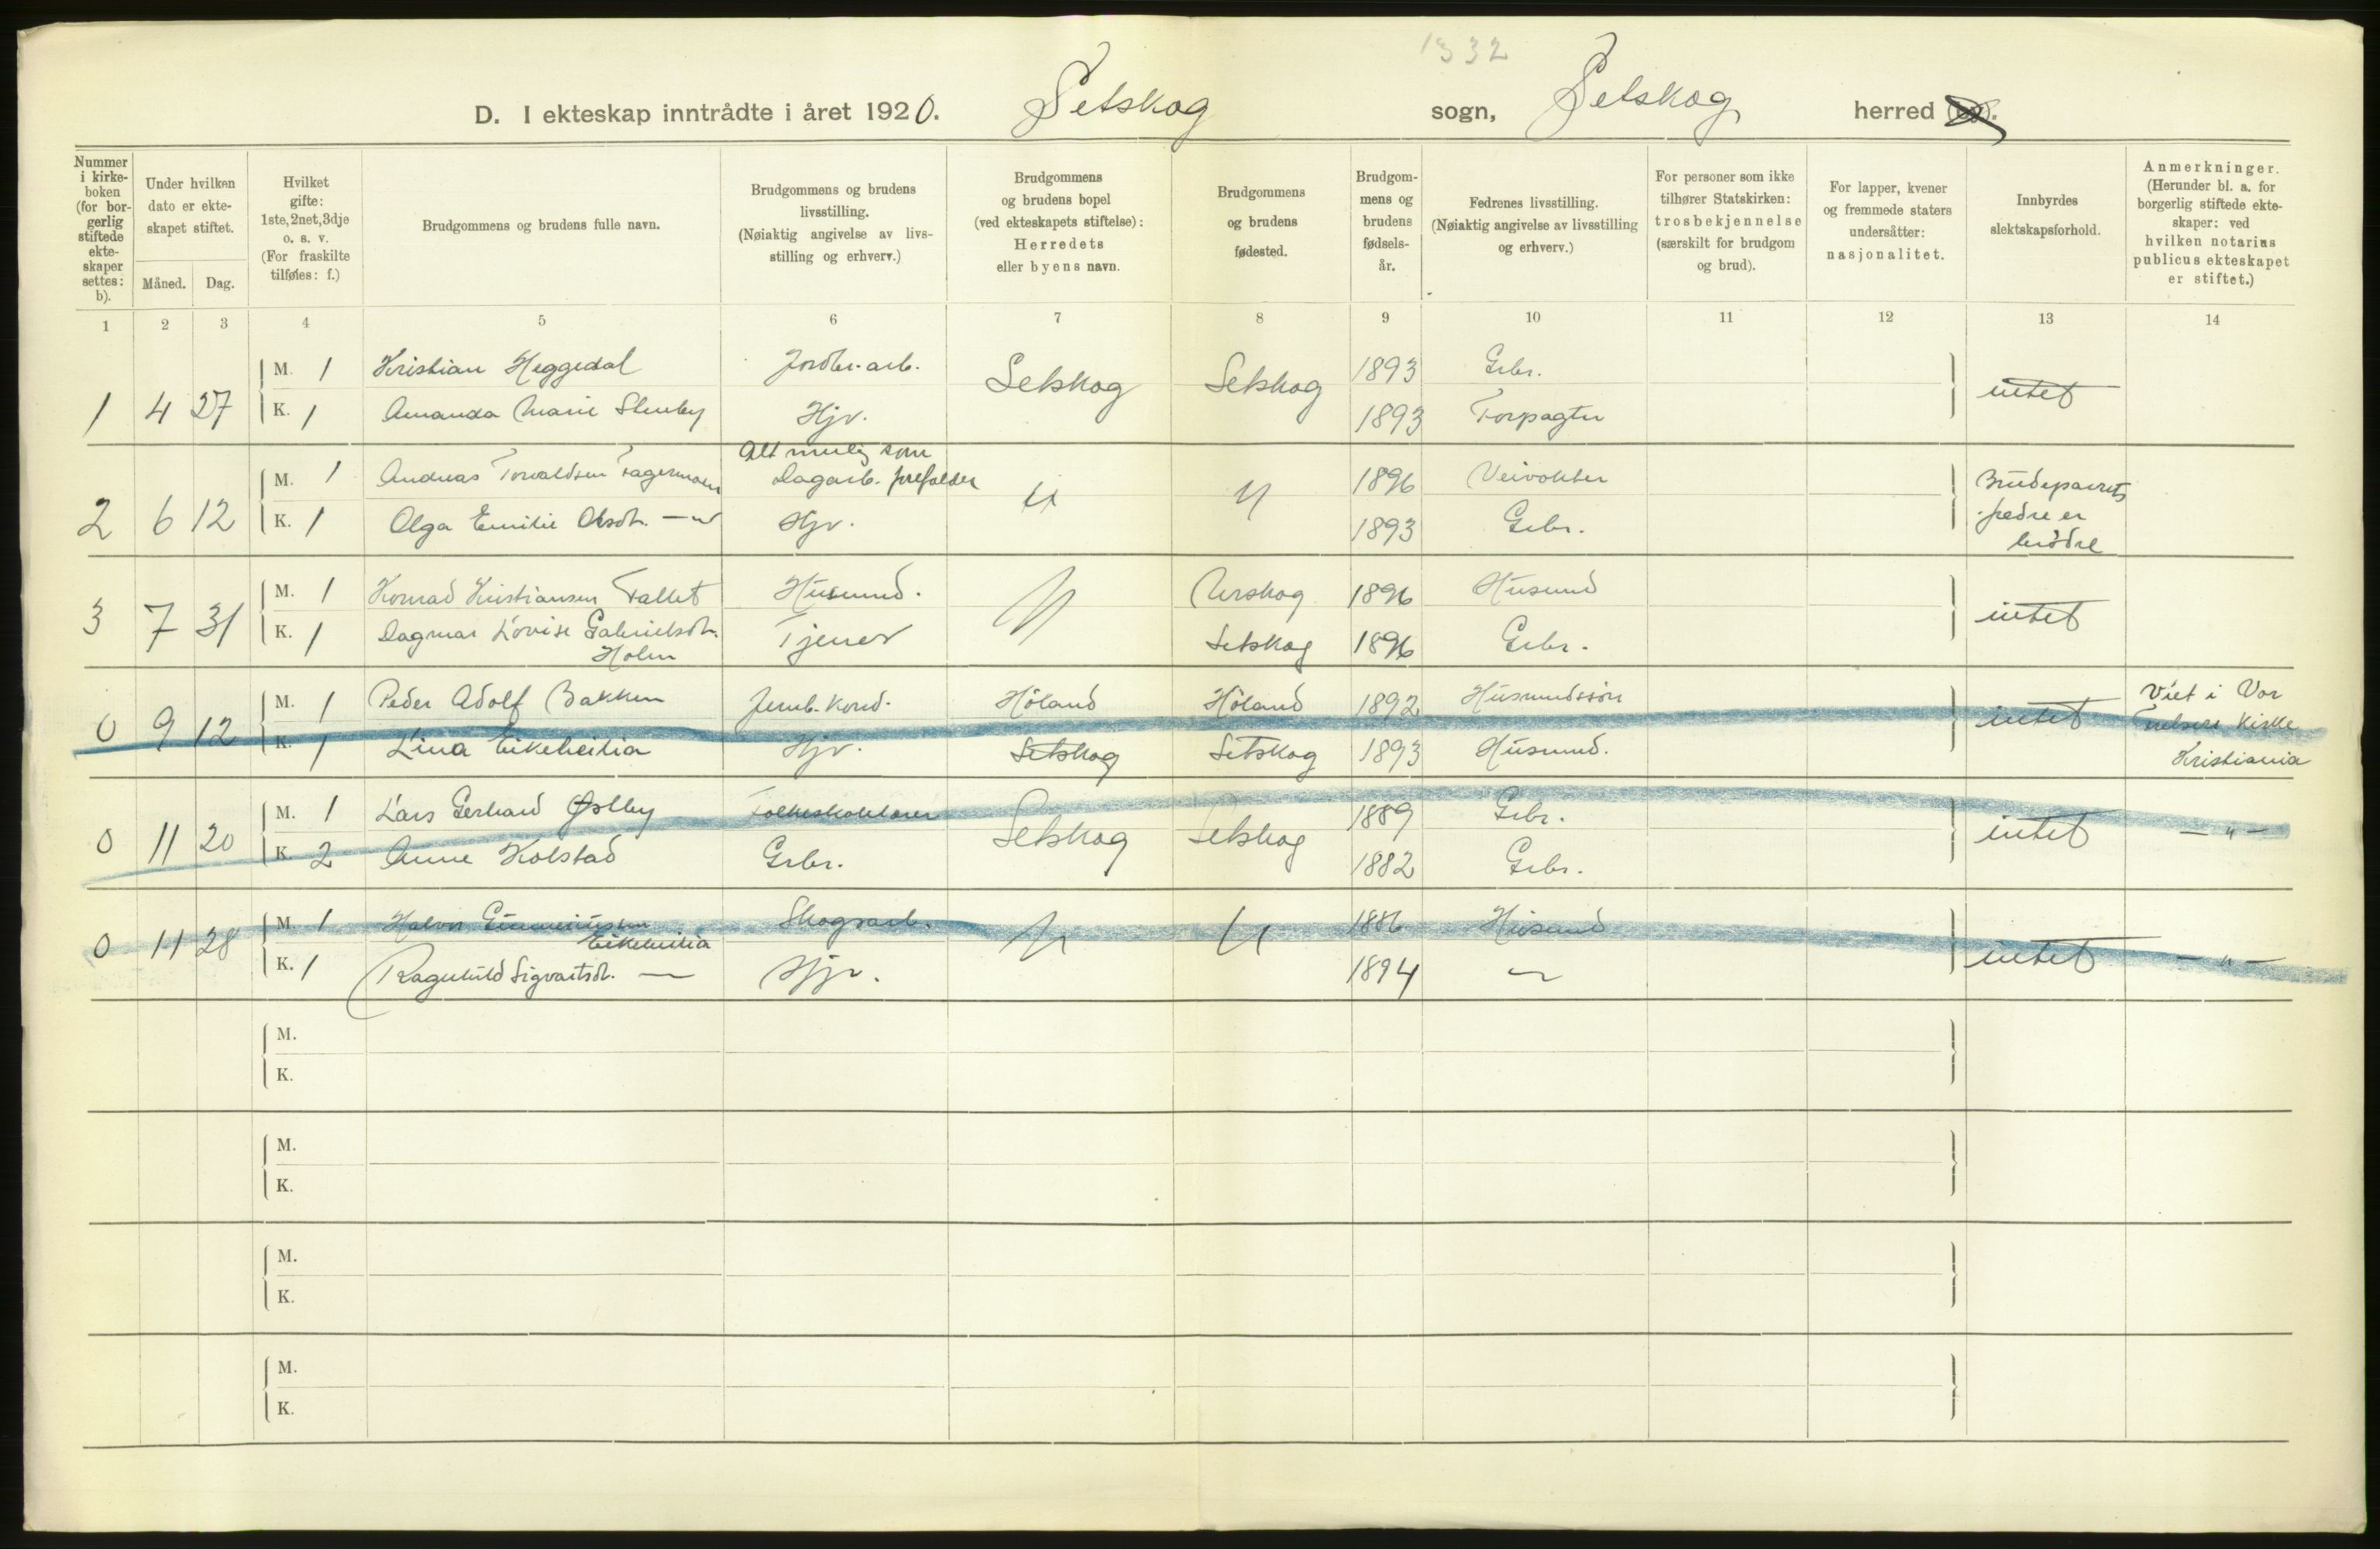 1332
D. I ekteskap inntrådte i året 1920. Setskog sogn, Setskog herred
Nummer i kirkeboken (for borgerlig stiftede ekteskaper settes: b).
Under hvilken dato er ekteskapet stiftet.
Måned. Dag.
Hvilket gifte: 1ste, 2net, 3dje o. s. v. (For fraskilte tilføies: f.)
Brudgommens og brudens fulle navn.
Brudgommens og brudens livsstilling. (Nøiaktig angivelse av livsstilling og erhverv.)
Brudgommens og brudens bopel (ved ekteskapets stiftelse): Herredets eller byens navn.
Brudgommens og brudens fødested.
Brudgommens og brudens fødselsår.
Fedrenes livsstilling. (Nøiaktig angivelse av livsstilling og erhverv.)
For personer som ikke tilhører Statskirken: trosbekjennelse (særskilt for brudgom og brud).
For lapper, kvener og fremmede staters undersåtter: nasjonalitet.
Innbyrdes slektskapsforhold.
Anmerkninger. (Herunder bl. a. for borgerlig stiftede ekteskaper: ved hvilken notarius publicus ekteskapet er stiftet.)
1 2 3 4 5 6 7 8 9 10 11 12 13 14
M. 1 Kristian Heggedal Jordbr. arb. Setskog Setskog 1893 Grbr. intet
1 4 27 K. 1 Amanda Marie Hjv. 1893 Forpagter
Alt mulig som
M. 1 Andreas Torvaldsen Fagermoen Dagarb. 〃 〃 1896 Veivokter Brudeparrets
2 6 12 K. 1 Olga Emilie Olsdt. — 〃 Hjv. 1893 Grbr. fedre er
brødre
M. 1 Konrad Kristiansen Fallet Husmnd. 〃 Urskog 1896 Husmnd intet
3 7 31 K. 1 Dagmar Lovise Gabrielsdt. Tjener Setskog 1896 Grbr.
Holm
M. 1 Peder Adolf Bakken Jernb. kond. Høland Høland 1892 Husmndssøn intet Viet i Vor
0 9 12 K. 1 Lina Eikeheilia Hjv. Setskog Setskog 1893 Husmnd. Frelsers Kirke
Kristiania
M. 1 Lars Gerhard Østby Folkeskolelærer Setskog Setskog 1889 Grbr. intet — 〃 —
0 11 20 K. 2 Anne Kolstad Grbr. 1882 Grbr.
M. 1 Halvor Gunneriussen Skogsarb. 〃 〃 1886 Husmnd intet — 〃 —
Eikeheilia
0 11 28 K. 1 Ragnhild Sigvartsdt. — Hjv. 1894 —
M.
K.
M.
K.
M.
K.
M.
K.